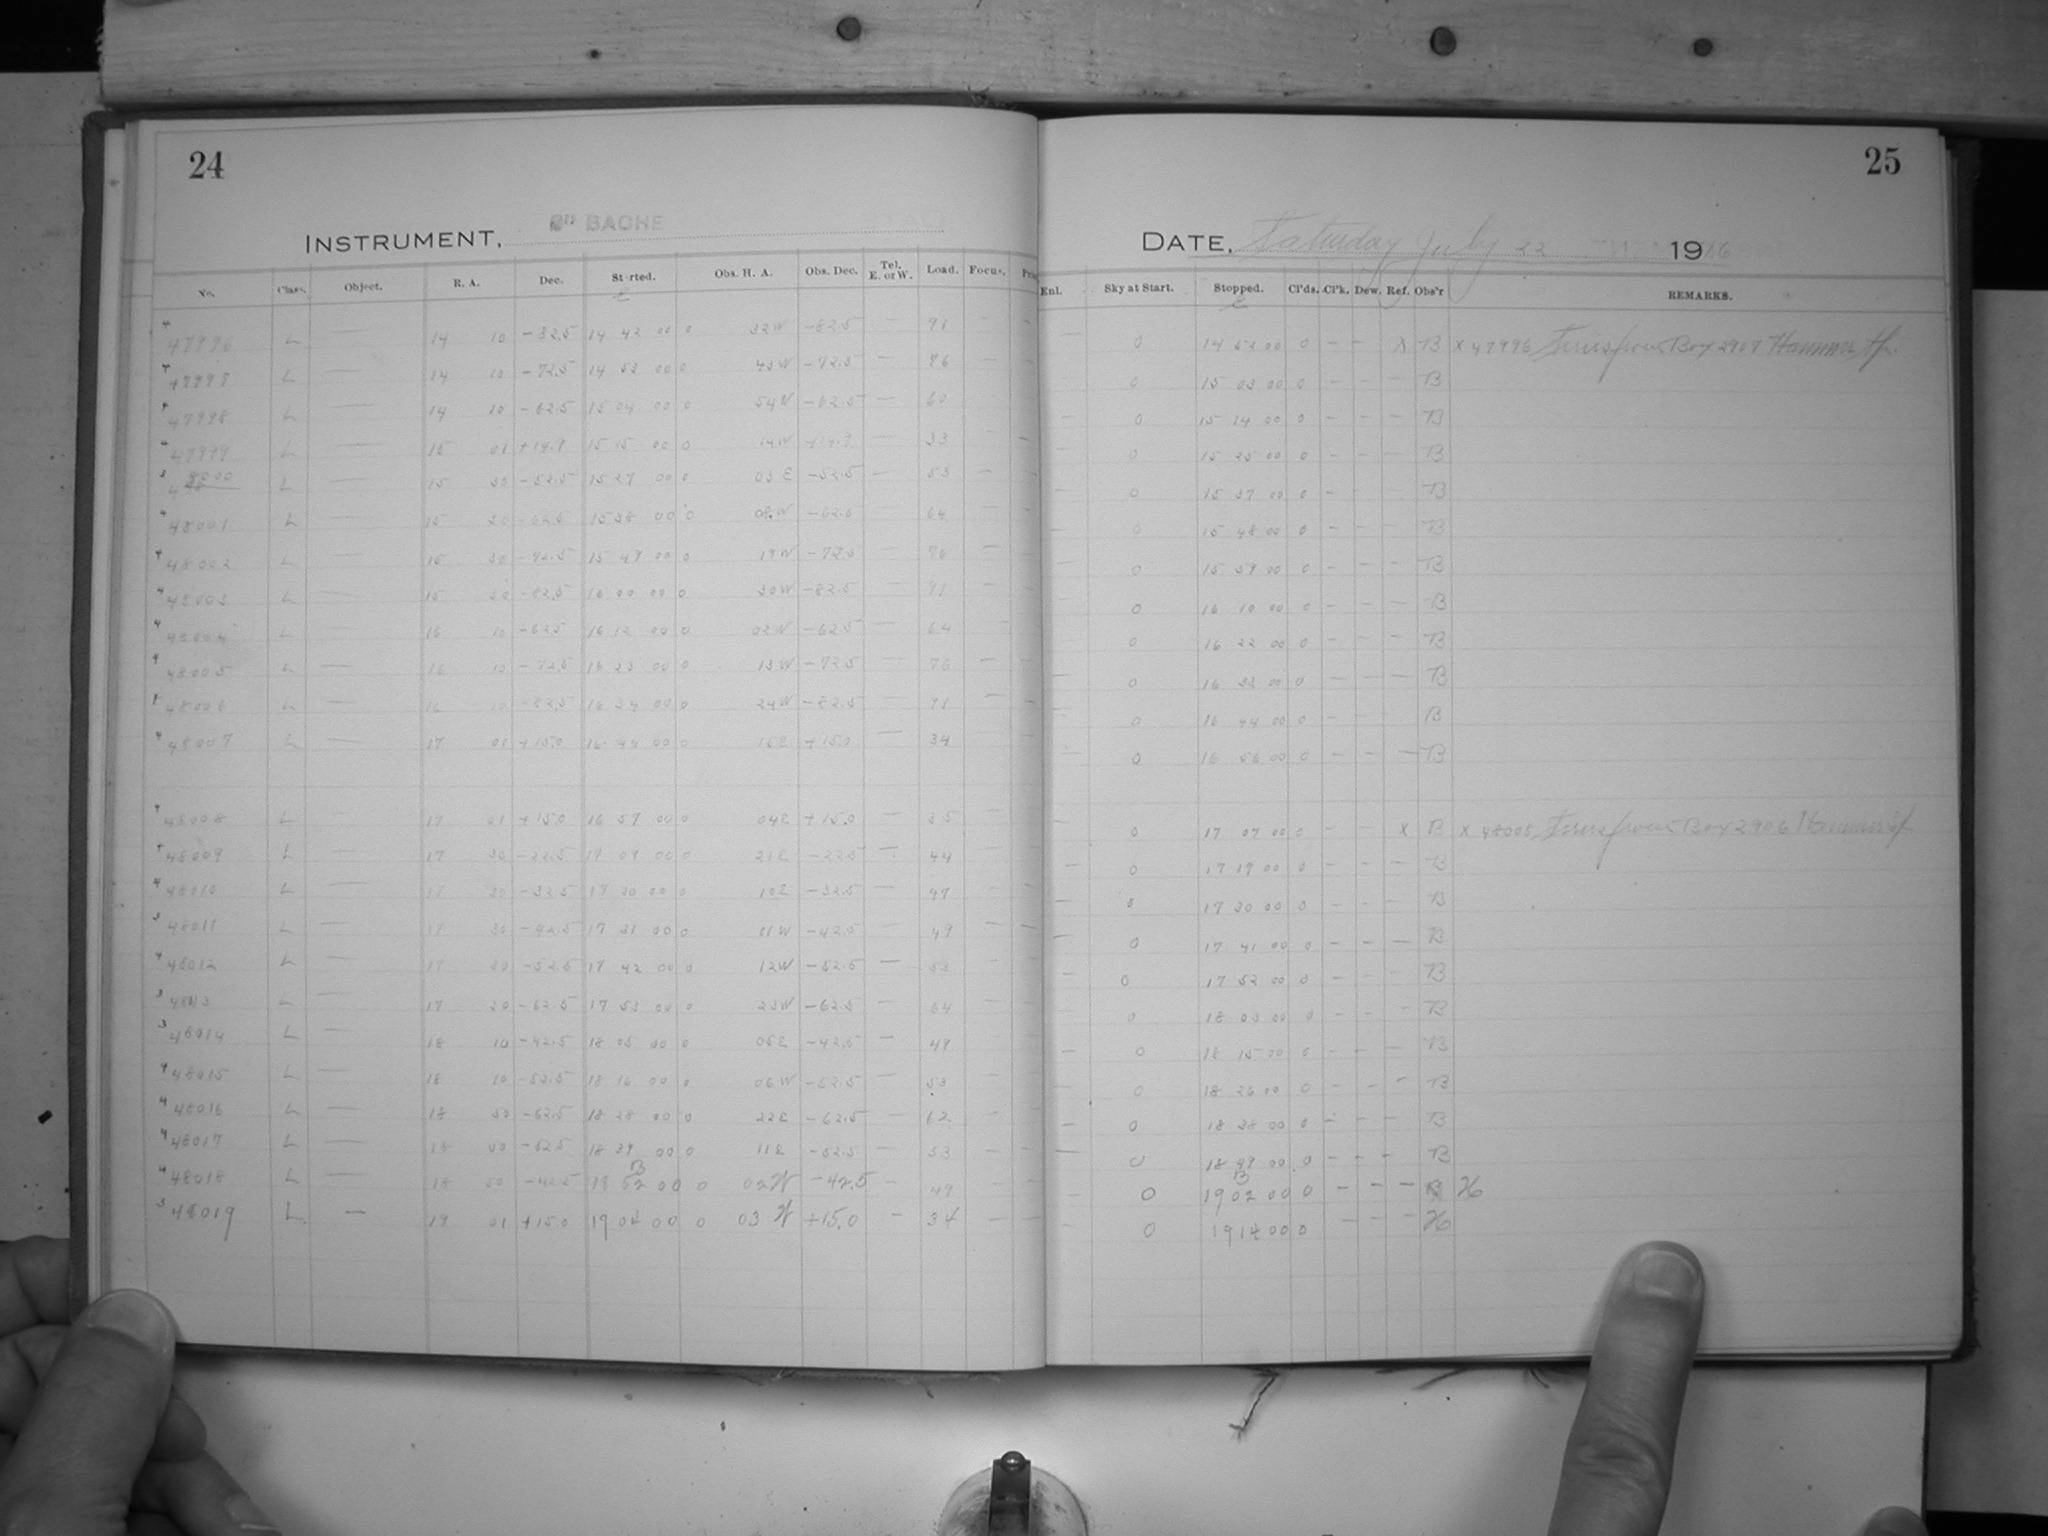 24
INSTRUMENT, 8" BACHE
No. Class. Object. R. A. Dec. Started. Obs. H. A. Obs. Dec. Tel. E. or W. Load. Focus.
47996 L — 14 10 -82.5 14 42 00 0 32W -82.5 — 91 —
47997 L — 14 10 -72.5 14 53 00 0 43W -72.5 — 76 —
47998 L — 14 10 -62.5 15 04 00 0 54W -62.5 — 60 —
47999 L — 15 01 +14.9 15 15 00 0 14W +14.9 — 33 —
L — 15 30 -52.5 15 27 00 0 03E -52.5 — 53 —
48001 L — 15 30 -62.5 15 38 00 0 08W -62.5 — 64 —
48002 L — 15 30 -72.5 15 49 00 0 19W -72.5 — 76 —
48003 L — 15 30 -82.5 16 00 00 0 30W -82.5 — 91 —
48004 L — 16 10 -62.5 16 12 00 0 02W -62.5 — 64 —
48005 L — 16 10 -72.5 16 23 00 0 13W -72.5 — 76 —
48006 L — 16 10 -82.5 16 34 00 0 24W -82.5 — 91 —
48007 L — 17 01 +15.0 16 46 00 0 15E +15.0 — 34
48008 L — 17 01 +15.0 16 57 00 0 04E +15.0 — 35 —
48009 L — 17 30 -22.5 17 09 00 0 21E -22.5 — 44 —
48010 L — 17 30 -32.5 17 20 00 0 10E -32.5 — 47 —
48011 L — 17 30 -42.5 17 31 00 0 01W -42.5 — 49 —
48012 L — 17 30 -52.5 17 42 00 0 12W -52.5 — 53 —
48013 L — 17 30 -62.5 17 53 00 0 23W -62.5 — 64 —
48014 L — 18 10 -42.5 18 05 00 0 05E -42.5 — 49 —
48015 L — 18 10 -52.5 18 16 00 0 06W -52.5 — 53 —
48016 L — 18 50 -62.5 18 28 00 0 22E -62.5 — 62 —
48017 L — 18 50 -52.5 18 39 00 0 11E -52.5 — 53 —
48018 L — 18 50 -42.5 52 00 0 02W -42.5 — 49 —
48019 L — 19 01 +15.0 19 04 00 0 03 W +15.0 — 34 —
25
DATE, Saturday July 22 1916
Enl. Sky at Start. Stopped. Cl'ds. Cl'k. Dew. Ref. Obs'r REMARKS.
0 14 52 00 0 — — X B X 47996 Series from Box 2907
0 15 03 00 0 — — — B
0 15 14 00 0 — — — B
0 15 25 00 0 — — — B
0 15 37 00 0 — — — B
0 15 48 00 0 — — — B
0 15 59 00 0 — — — B
0 16 10 00 0 — — — B
0 16 22 00 0 — — — B
0 16 33 00 0 — — — B
0 16 44 00 0 — — — B
0 16 56 00 0 — — — B
0 17 07 00 0 — — X B X 48008 Series from Box 2906
0 17 19 00 0 — — — B
0 17 30 00 0 — — — B
0 17 41 00 0 — — — B
0 17 52 00 0 — — — B
0 18 03 00 0 — — — B
0 18 15 00 0 — — — B
0 18 26 00 0 — — — B
0 18 38 00 0 — — — B
0 18 49 00 0 — — — B
0 19 02 00 0 — — — B H
0 19 14 00 0 — — — H